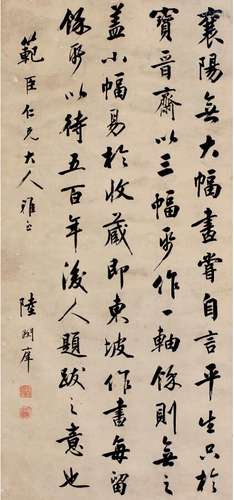 襄陽無大幅畫嘗自言平生只於
寶晉齋以三幅聯作一軸餘則無之
蓋小幅易於收藏即東坡作書每留
餘所以待五百年後人題跋之意也
範臣仁兄大人雅正
陸潤庠